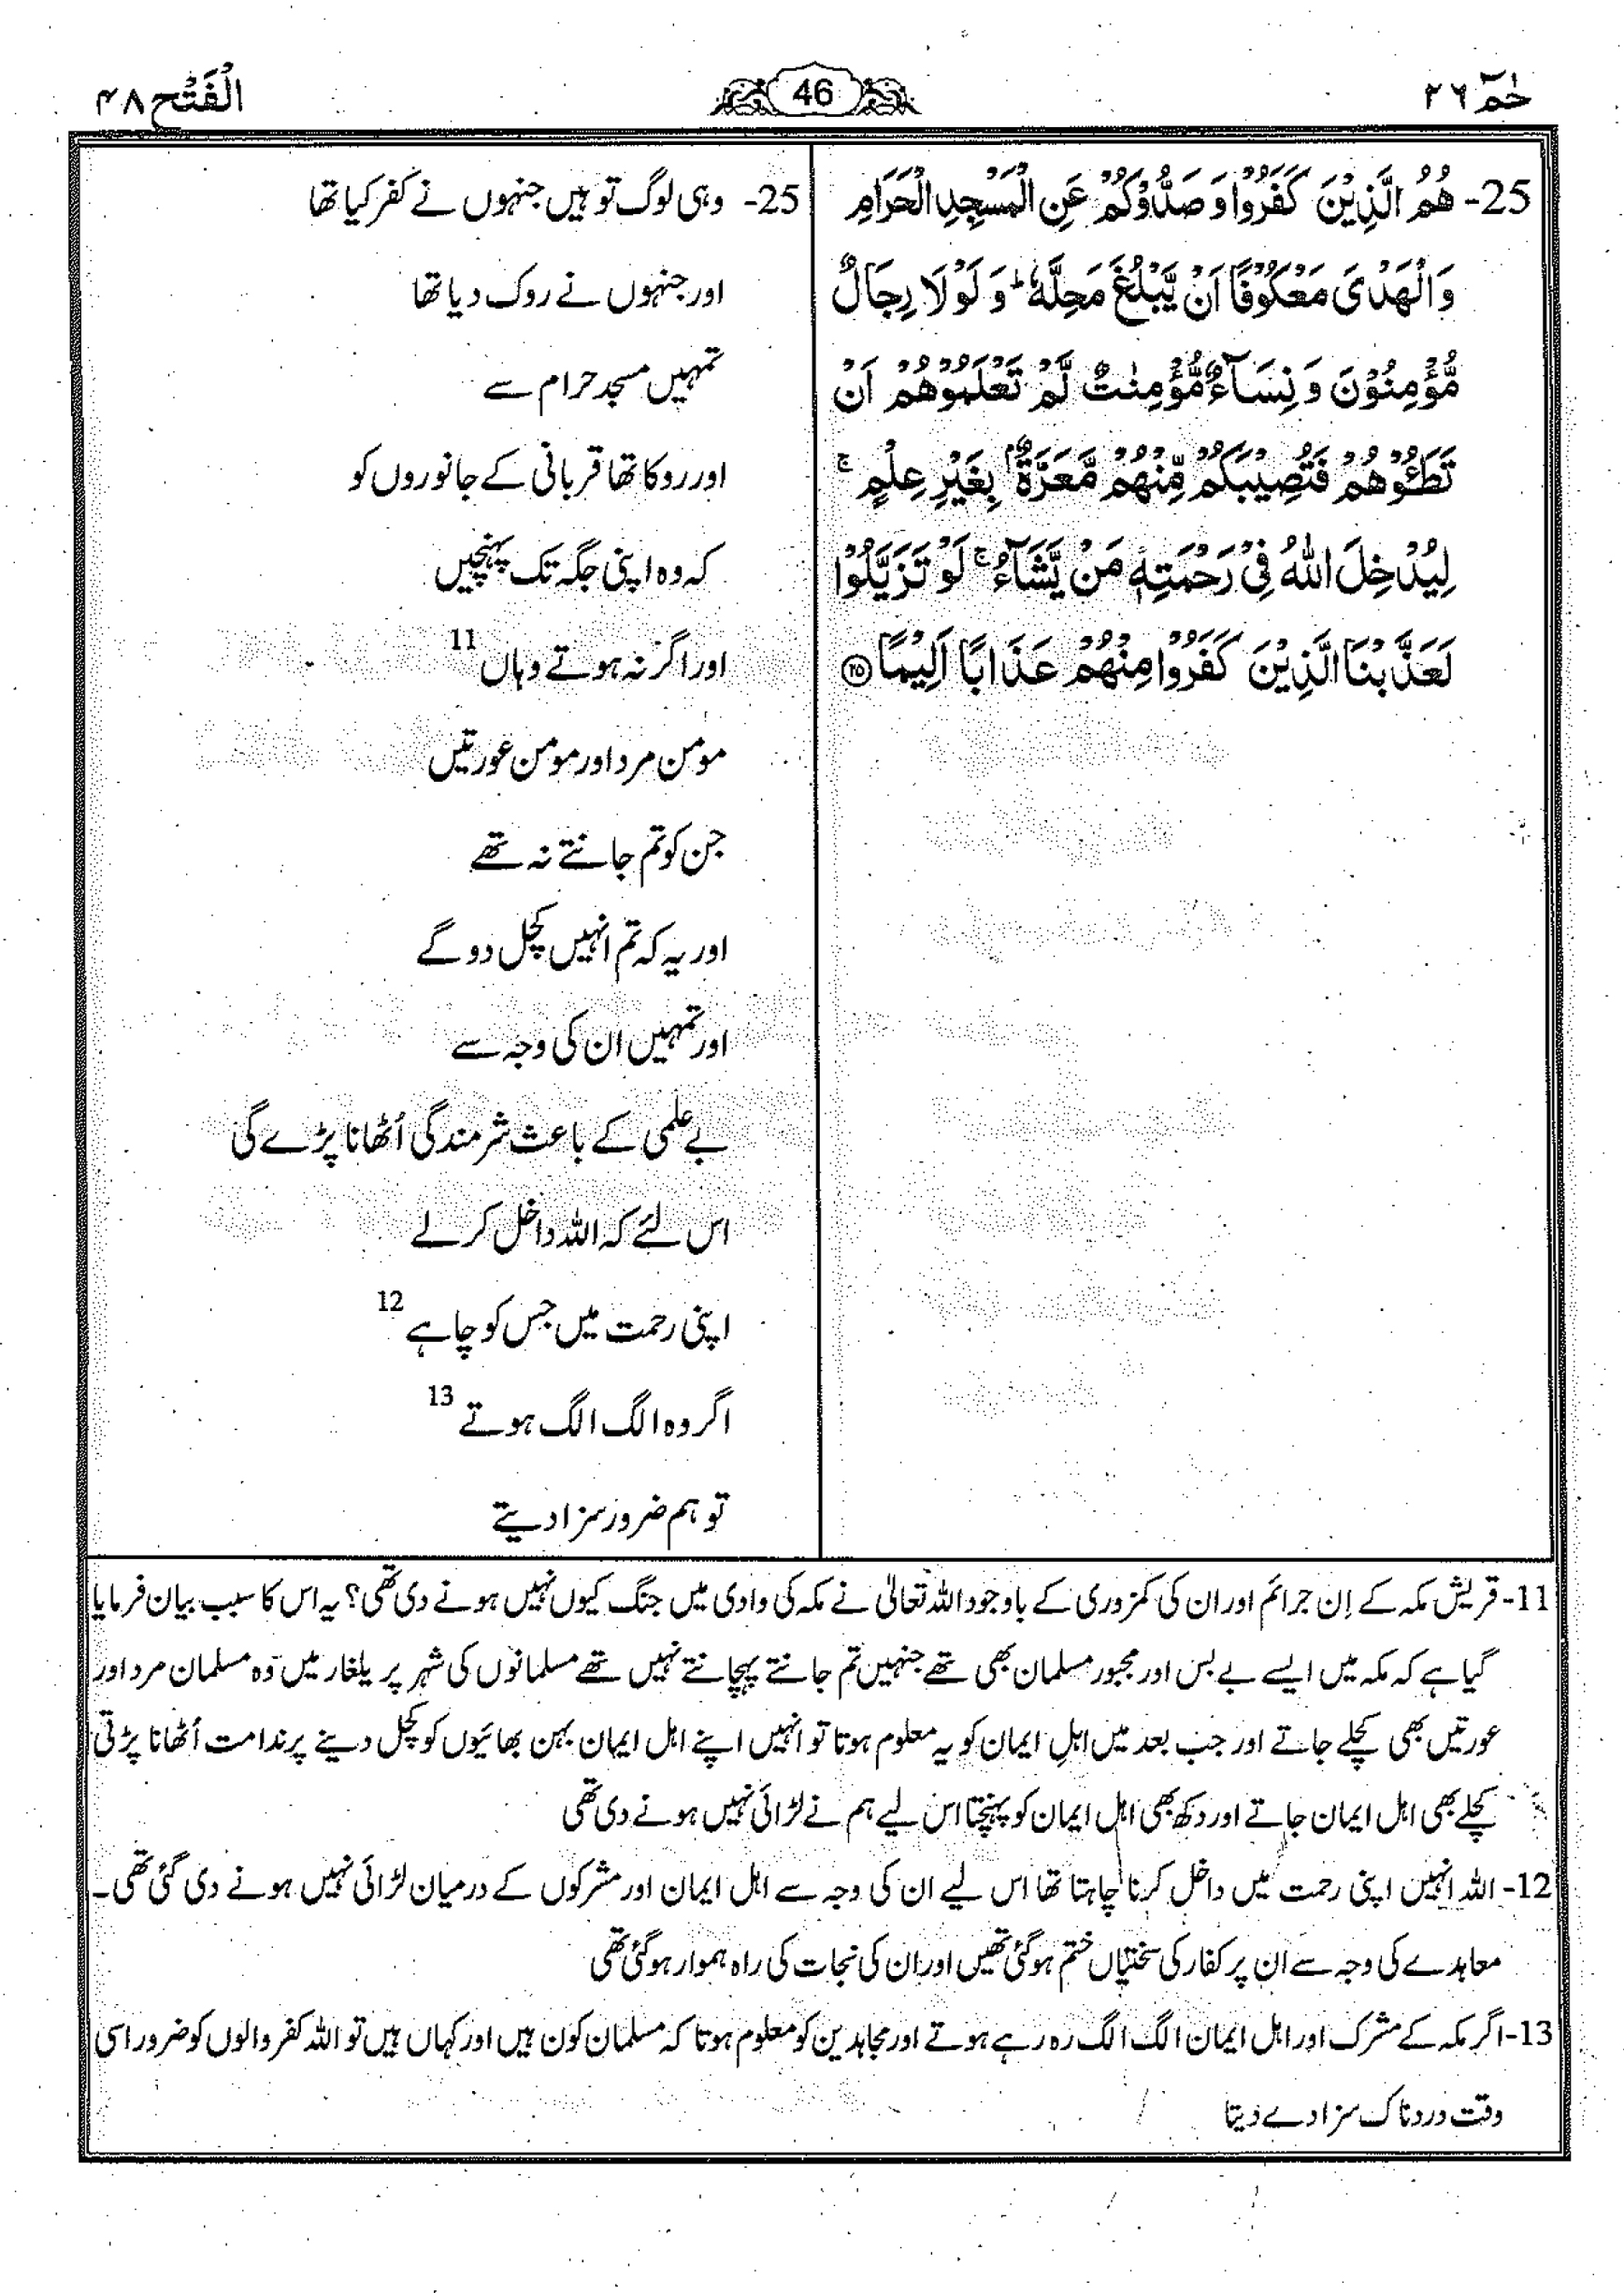 حٰمٓ ٢٦
46
الْفَتْح ٤٨
25- هُمُ الَّذِيْنَ كَفَرُوْا وَ صَدُّوْكُمْ عَنِ الْمَسْجِدِ الْحَرَامِ
وَالْهَدْىَ مَعْكُوْفًا اَنْ يَّبْلُغَ مَحِلَّهٗ ؕ وَ لَوْ لَا رِجَالٌ
مُّؤْمِنُوْنَ وَ نِسَآءٌ مُّؤْمِنٰتٌ لَّمْ تَعْلَمُوْهُمْ اَنْ
تَطَـُٔوْهُمْ فَتُصِيْبَكُمْ مِّنْهُمْ مَّعَرَّةٌۢ بِغَيْرِ عِلْمٍ ۚ
لِيُدْخِلَ اللّٰهُ فِىْ رَحْمَتِهٖ مَنْ يَّشَآءُ ۚ لَوْ تَزَيَّلُوْا
لَعَذَّبْنَا الَّذِيْنَ كَفَرُوْا مِنْهُمْ عَذَابًا اَلِيْمًا ۝٢٥
25- وہی لوگ تو ہیں جنہوں نے کفر کیا تھا
اور جنہوں نے روک دیا تھا
تمہیں مسجد حرام سے
اور روکا تھا قربانی کے جانوروں کو
کہ وہ اپنی جگہ تک پہنچیں
اور اگر نہ ہوتے وہاں 11
مومن مرد اور مومن عورتیں
جن کو تم جانتے نہ تھے
اور یہ کہ تم انہیں کچل دو گے
اور تمہیں ان کی وجہ سے
بے علمی کے باعث شرمندگی اُٹھانا پڑے گی
اس لئے کہ اللہ داخل کر لے
اپنی رحمت میں جس کو چاہے 12
اگر وہ الگ الگ ہوتے 13
تو ہم ضرور سزا دیتے
11- قریش مکہ کے اِن جرائم اور ان کی کمزوری کے باوجود اللہ تعالیٰ نے مکہ کی وادی میں جنگ کیوں نہیں ہونے دی تھی؟ یہ اس کا سبب بیان فرمایا
گیا ہے کہ مکہ میں ایسے بے بس اور مجبور مسلمان بھی تھے جنہیں تم جانتے پہچانتے نہیں تھے مسلمانوں کی شہر پر یلغار میں وہ مسلمان مرد اور
عورتیں بھی کچلے جاتے اور جب بعد میں اہلِ ایمان کو یہ معلوم ہوتا تو انہیں اپنے اہل ایمان بہن بھائیوں کو کچل دینے پر ندامت اُٹھانا پڑتی
کچلے بھی اہل ایمان جاتے اور دکھ بھی اہل ایمان کو پہنچتا اس لیے ہم نے لڑائی نہیں ہونے دی تھی
12- اللہ انہیں اپنی رحمت میں داخل کرنا چاہتا تھا اس لیے ان کی وجہ سے اہل ایمان اور مشرکوں کے درمیان لڑائی نہیں ہونے دی گئی تھی۔
معاہدے کی وجہ سے ان پر کفار کی سختیاں ختم ہو گئی تھیں اور ان کی نجات کی راہ ہموار ہو گئی تھی
13- اگر مکہ کے مشرک اور اہل ایمان الگ الگ رہ رہے ہوتے اور مجاہدین کو معلوم ہوتا کہ مسلمان کون ہیں اور کہاں ہیں تو اللہ کفر والوں کو ضرور اسی
وقت دردناک سزا دے دیتا